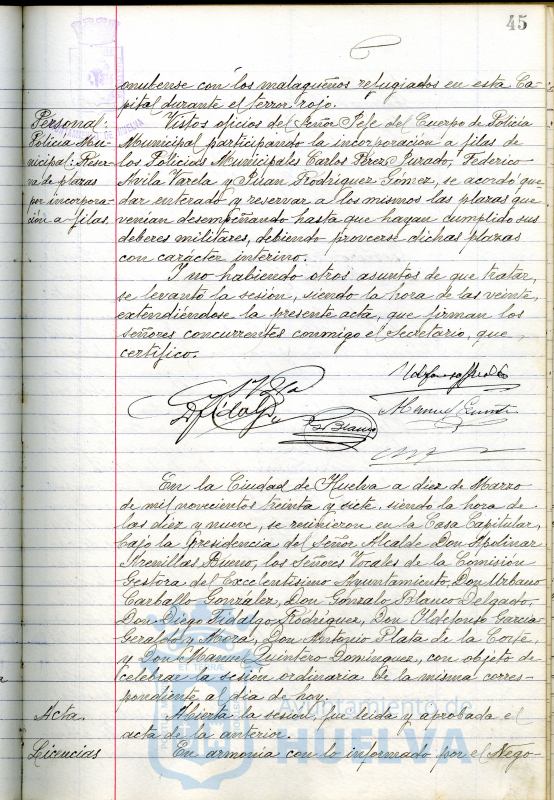 45
onubense con los malagueños refugiados en esta Ca-
pital durante el terror rojo.
Personal:
Policia Mu-
nicipal: Reser-
va de plazas
por incorpora-
ción a filas.
Vistos oficios del Señor Jefe del Cuerpo de Policia
Municipal participando la incorporación a filas de
los Policias Municipales Carlos Pérez Jurado, Federico
Avila Varela y Juan Rodríguez Gómez, se acordó que-
dar enterado y reservar a los mismos las plazas que
venian desempeñando hasta que hayan cumplido sus
deberes militares, debiendo proveerse dichas plazas
con carácter interino.
Y no habiendo otros asuntos de que tratar,
se levantó la sesión, siendo la hora de las veinte,
extendiéndose la presente acta, que firman los
señores concurrentes conmigo el Secretario, que
certifico.
En la Ciudad de Huelva a diez de Marzo
de mil novecientos treinta y siete, siendo la hora de
las diez y nueve, se reunieron en la Casa Capitular,
bajo la presidencia del Señor Alcalde Don Apolinar
Arenillas Bueno, los Señores Vocales de la Comisión
Gestora del Excelentísimo Ayuntamiento Don Urbano
Carballo González, Don Gonzalo Blanco Delgado,
Don Diego Fidalgo Rodríguez, Don Ildefonso Garcia
Geraldo y Mora, Don Antonio Plata de la Corte,
y Don Manuel Quintero Domínguez, con objeto de
celebrar la sesión ordinaria de la misma corres-
pondiente al dia de hoy.
Acta.
Abierta la sesión, fue leida y aprobada el
acta de la anterior.
Licencias
En armonía con lo informado por el Nego-
Ayuntamiento de
HUELVA